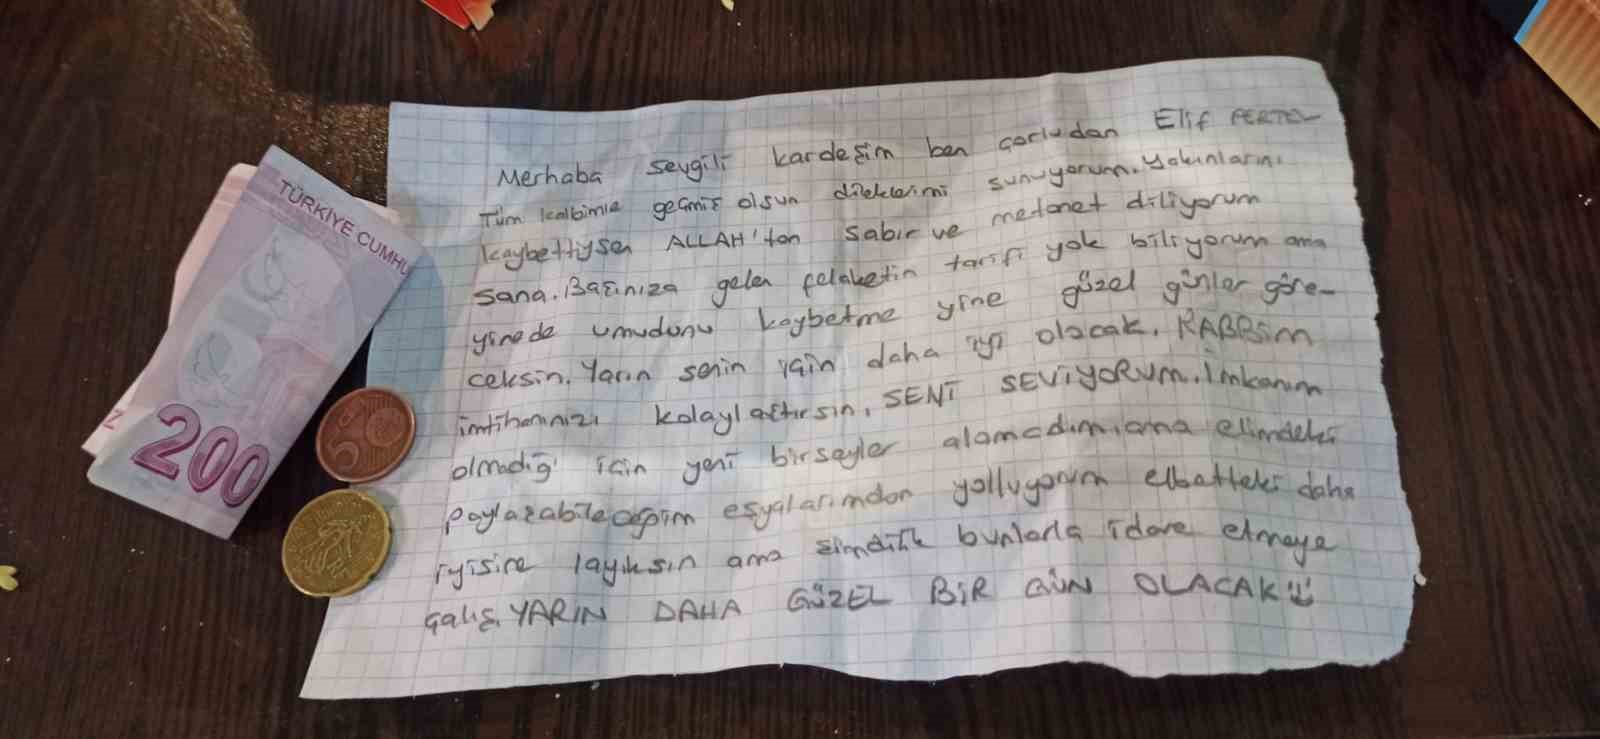 TÜRKİYE CUMHU
200
Merhaba sevgili kardeşim ben çorludan Elif
Tüm kalbimle geçmiş olsun dileklerimi sunuyorum. Yakınlarını
kaybettiysen ALLAH'tan sabır ve metanet diliyorum
sana. Başınıza gelen felaketin tarifi yok biliyorum ama
yinede umudunu kaybetme yine güzel günler göre-
ceksin. Yarın senin için daha iyi olacak. RABBİM
imtihanınızı kolaylaştırsın. SENİ SEVİYORUM. İmkanım
olmadığı için yeni birşeyler alamadım ama elimdeki
paylaşabileceğim eşyalarımdan yolluyorum elbetteki daha
iyisine layıksın ama şimdilik bunlarla idare etmeye
çalış. YARIN DAHA GÜZEL BİR GÜN OLACAK